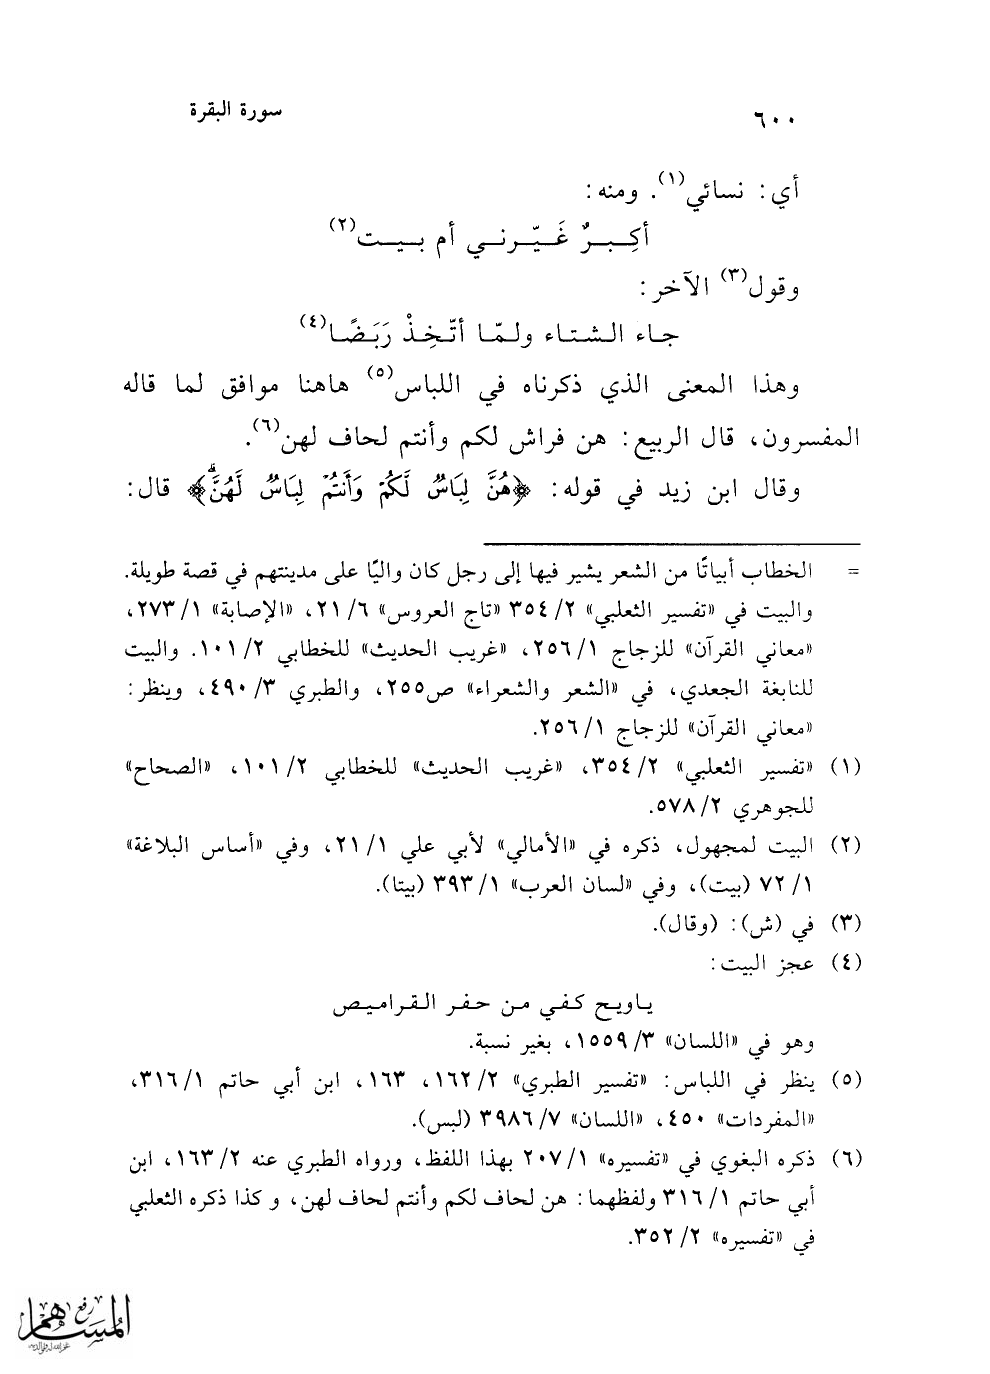 ٦٠٠
سورة البقرة
أي: نسائي(١). ومنه:
أكِـبـرٌ غَـيّـرنـي أم بـيـت(٢)
وقول(٣) الآخر:
جـاء الـشـتـاء ولـمّـا أتّـخِـذْ رَبَـضًـا(٤)
وهذا المعنى الذي ذكرناه في اللباس(٥) هاهنا موافق لما قاله
المفسرون، قال الربيع: هن فراش لكم وأنتم لحاف لهن(٦).
وقال ابن زيد في قوله: ﴿هُنَّ لِبَاسٌ لَّكُمْ وَأَنتُمْ لِبَاسٌ لَّهُنَّ﴾ قال:
= الخطاب أبياتًا من الشعر يشير فيها إلى رجل كان واليًا على مدينتهم في قصة طويلة.
والبيت في «تفسير الثعلبي» ٢/ ٣٥٤ «تاج العروس» ٦/ ٢١، «الإصابة» ١/ ٢٧٣،
«معاني القرآن» للزجاج ١/ ٢٥٦، «غريب الحديث» للخطابي ٢/ ١٠١. والبيت
للنابغة الجعدي، في «الشعر والشعراء» ص٢٥٥، والطبري ٣/ ٤٩٠، وينظر:
«معاني القرآن» للزجاج ١/ ٢٥٦.
(١) «تفسير الثعلبي» ٢/ ٣٥٤، «غريب الحديث» للخطابي ٢/ ١٠١، «الصحاح»
للجوهري ٢/ ٥٧٨.
(٢) البيت لمجهول، ذكره في «الأمالي» لأبي علي ١/ ٢١، وفي «أساس البلاغة»
١/ ٧٢ (بيت)، وفي «لسان العرب» ١/ ٣٩٣ (بيتا).
(٣) في (ش): (وقال).
(٤) عجز البيت:
يـاويـح كـفـي مـن حـفـر الـقـرامـيـص
وهو في «اللسان» ٣/ ١٥٥٩، بغير نسبة.
(٥) ينظر في اللباس: «تفسير الطبري» ٢/ ١٦٢، ١٦٣، ابن أبي حاتم ١/ ٣١٦،
«المفردات» ٤٥٠، «اللسان» ٧/ ٣٩٨٦ (لبس).
(٦) ذكره البغوي في «تفسيره» ١/ ٢٠٧ بهذا اللفظ، ورواه الطبري عنه ٢/ ١٦٣، ابن
أبي حاتم ١/ ٣١٦ ولفظهما: هن لحاف لكم وأنتم لحاف لهن، و كذا ذكره الثعلبي
في «تفسيره» ٢/ ٣٥٢.